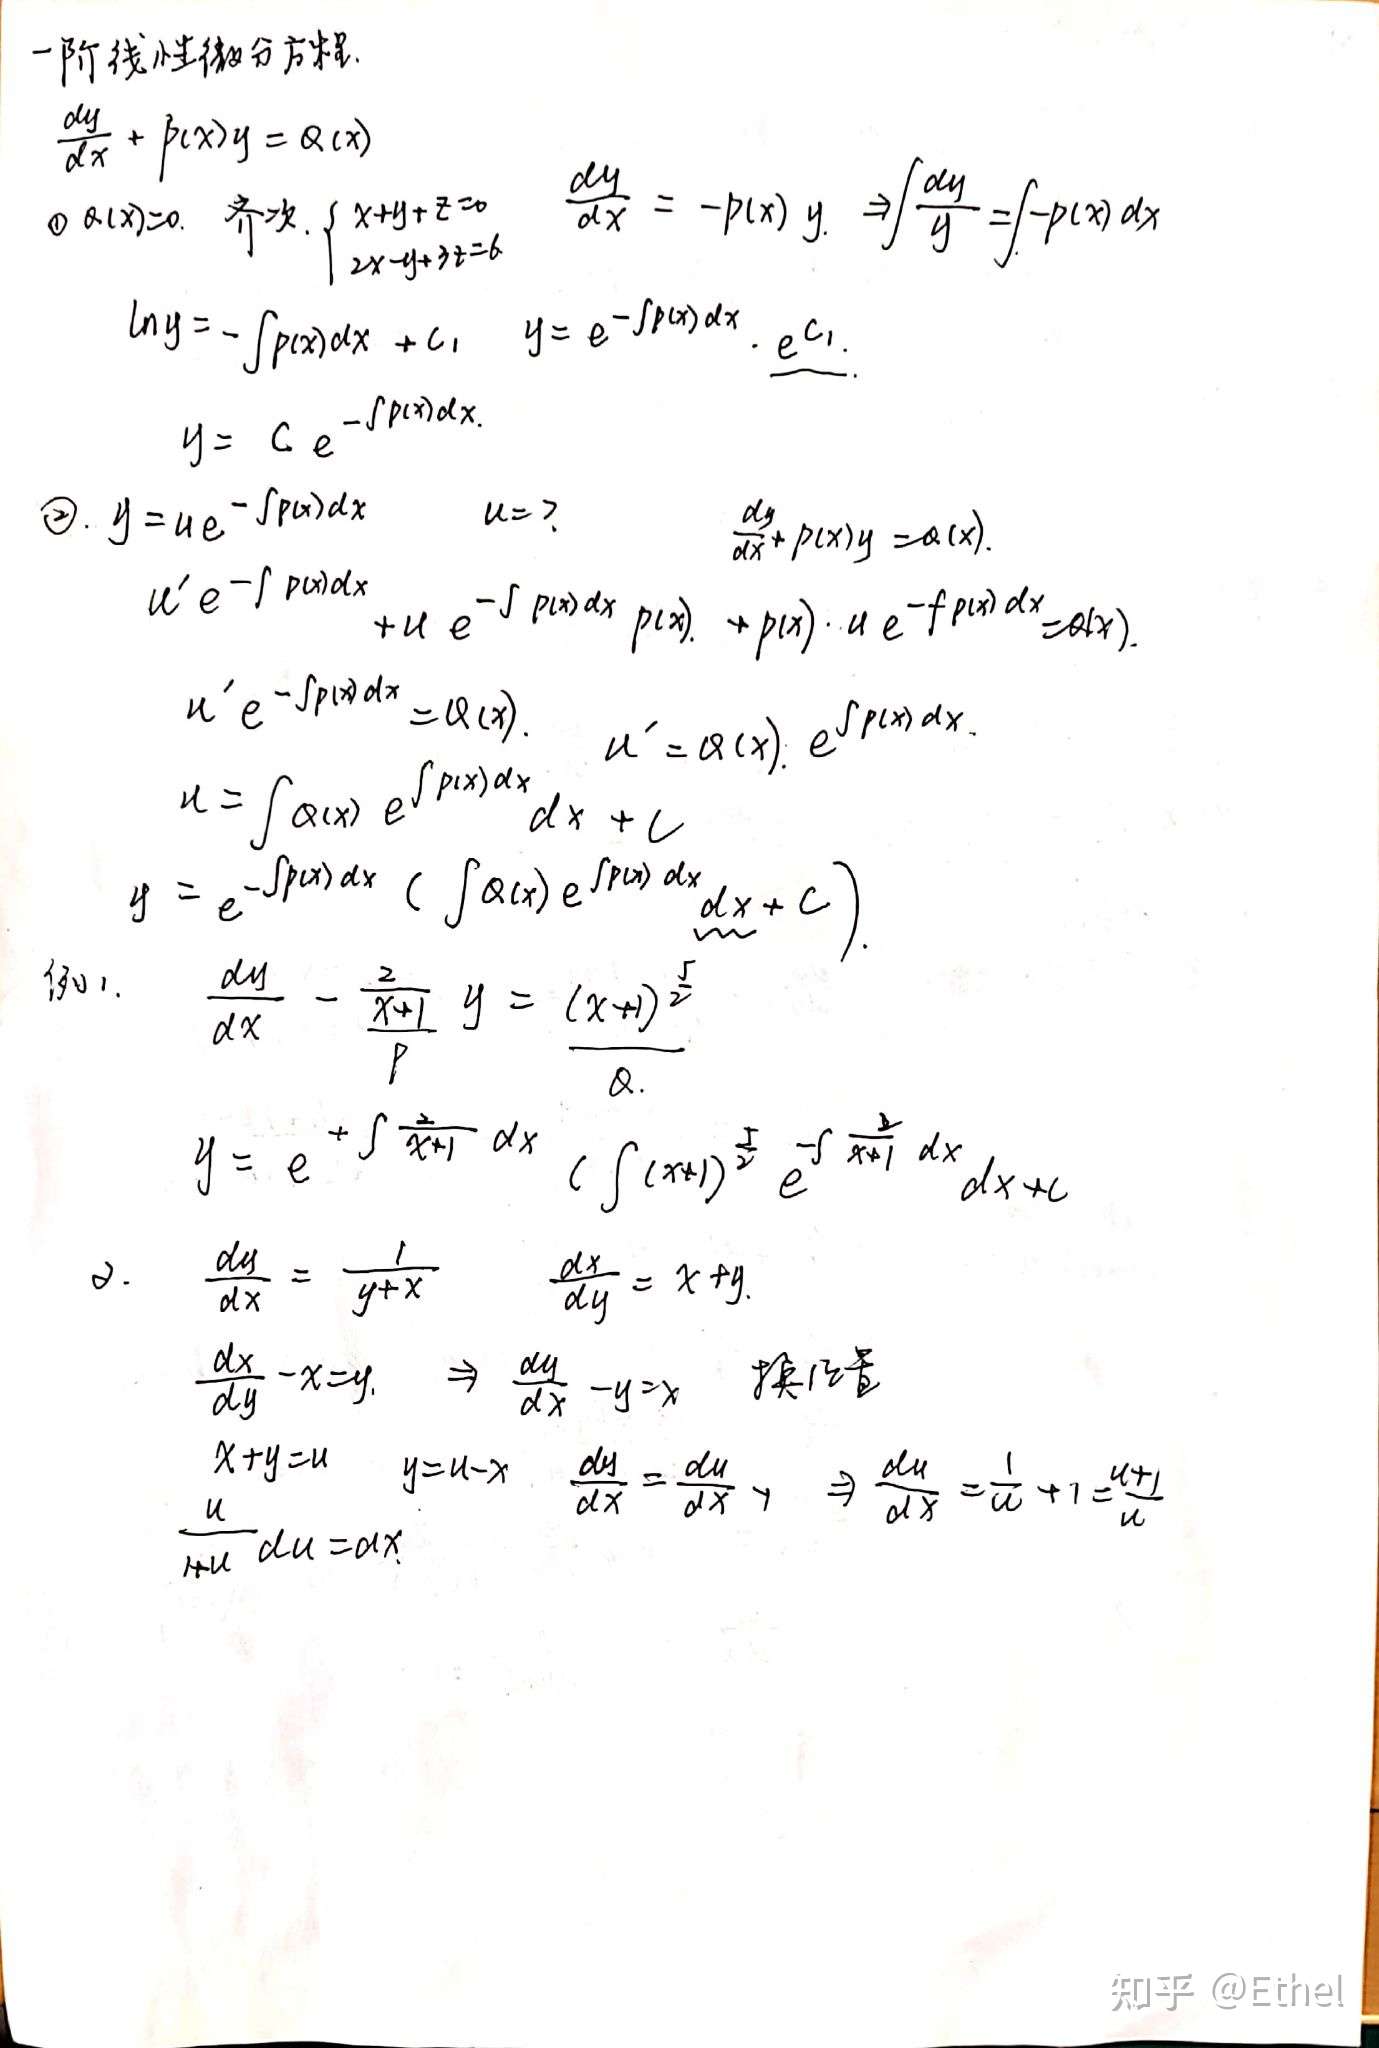 一阶线性微分方程.
dy/dx + p(x)y = Q(x)
① Q(x)=0. 齐次. { x+y+z=0 2x-y+3z=6 dy/dx = -p(x) y. ⇒ ∫ dy/y = ∫ -p(x) dx
ln y = -∫p(x)dx + C₁ y = e^{-∫p(x)dx} · e^{C₁}.
y = C e^{-∫p(x)dx}.
②. y = u e^{-∫p(x)dx} u=? dy/dx + p(x)y = Q(x).
u′ e^{-∫p(x)dx} + u e^{-∫p(x)dx} p(x). + p(x)·u e^{-∫p(x)dx} = Q(x).
u′ e^{-∫p(x)dx} = Q(x). u′ = Q(x). e^{∫p(x)dx}.
u = ∫Q(x) e^{∫p(x)dx} dx + C
y = e^{-∫p(x)dx} ( ∫Q(x) e^{∫p(x)dx} dx + C ).
例1. dy/dx - 2/(x+1) y = (x+1)^{5/2}
P Q.
y = e^{+∫ 2/(x+1) dx} ( ∫(x+1)^{5/2} e^{-∫ 2/(x+1) dx} dx + C
2. dy/dx = 1/(y+x) dx/dy = x+y.
dx/dy - x = y. ⇒ dy/dx - y = x 换位置
x+y=u y=u-x dy/dx = du/dx - 1 ⇒ du/dx = 1/u + 1 = (u+1)/u
u/(1+u) du = dx.
知乎 @Ethel